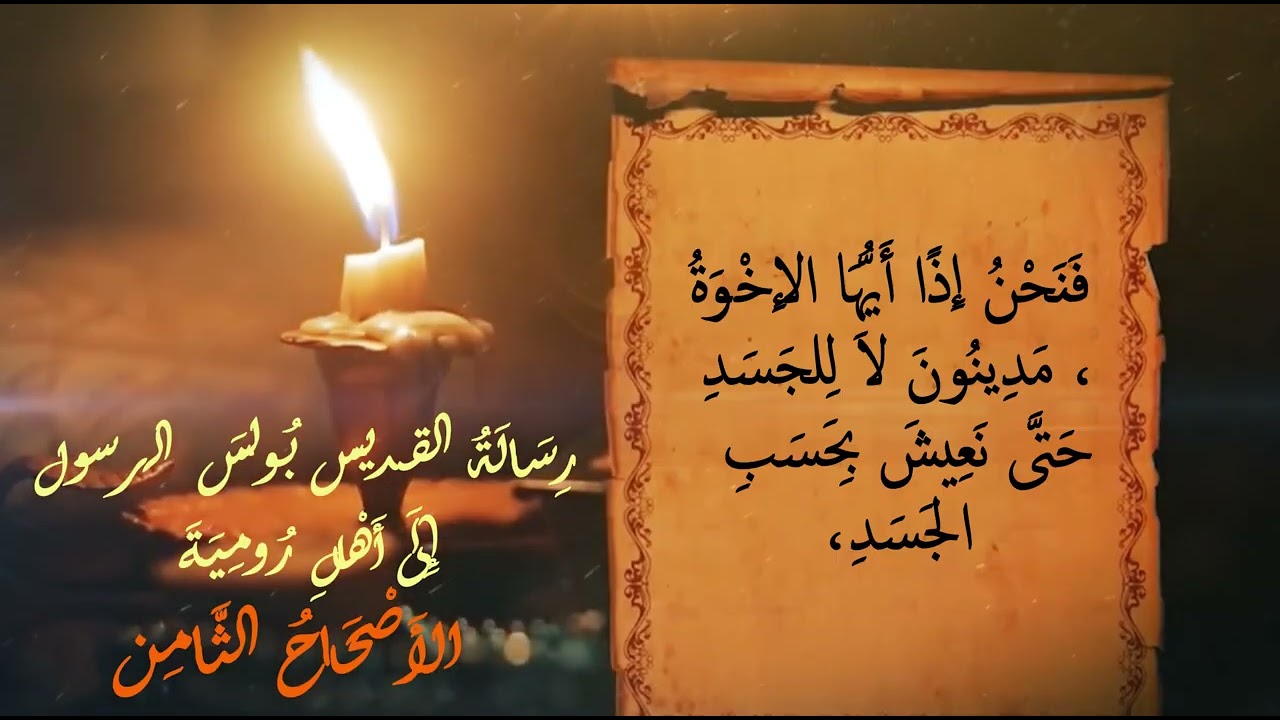 فَنَحْنُ إِذًا أَيُّهَا الإِخْوَةُ
، مَدِينُونَ لاَ لِلجَسَدِ
حَتَّى نَعِيشَ بِحَسَبِ
الجَسَدِ،
رِسَالَةُ القديس بُولسَ الرسول
إِلَى أَهْلِ رُومِيَةَ
الأَصْحَاحُ الثَّامِن